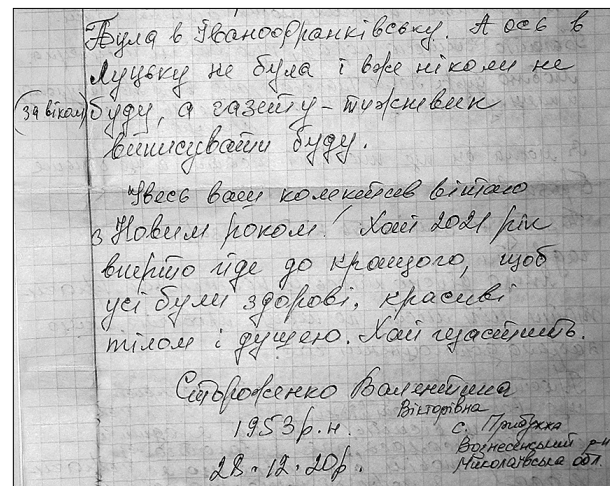 Була в Іванофранківську. А ось в
Луцьку не була і вже ніколи не
(за віком) буду, а газету-тижневик
виписувати буду.
Увесь ваш колектив вітаю
з Новим роком! Хай 2021 рік
вперто йде до кращого, щоб
усі були здорові, красиві
тілом і душею. Хай щастить.
Стороженко Валентина
Вікторівна
1953 р.н.
с. Прибужжя
Вознесенський р-н
Миколаївська обл.
28.12.20р.